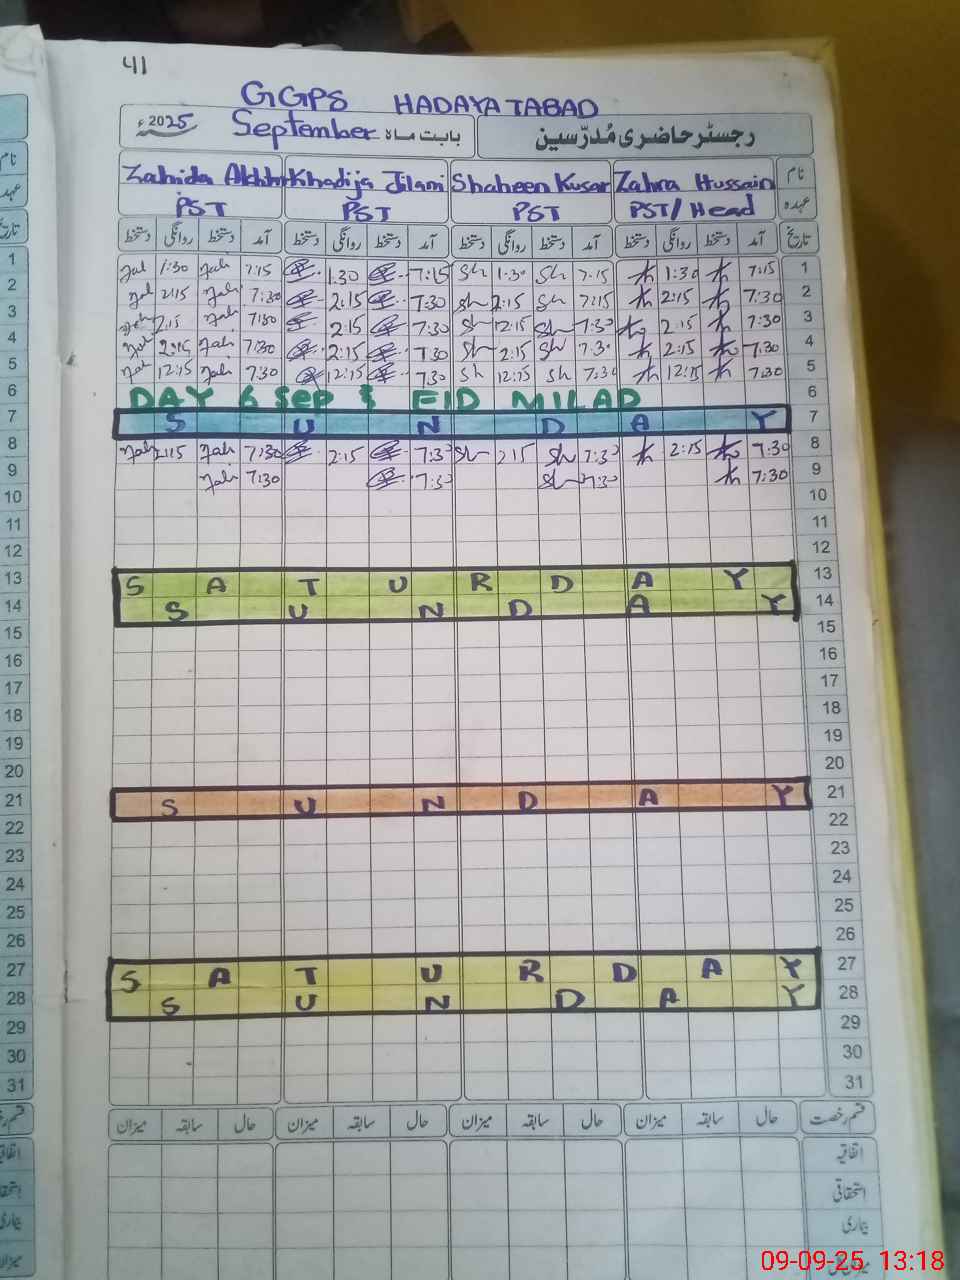 41
GGPS HADAYATABAD
رجسٹر حاضری مُدرّسین
بابت ماہ September 2025ء
نام Zahra Hussain Shaheen Kusar Khadija Jilani Zahida Akhtr
عہدہ PST/Head PST PST PST
تاریخ آمد دستخط روانگی دستخط آمد دستخط روانگی دستخط آمد دستخط روانگی دستخط آمد دستخط روانگی دستخط
1 1:30 7:15 1:30 7:15 Sh 1:30 Sh 7:15 1:30 7:15 1
2 2:15 7:30 2:15 7:30 Sh 2:15 Sh 7:15 2:15 7:30 2
3 2:15 7:30 2:15 7:30 Sh 12:15 Sh 7:30 2:15 7:30 3
4 2:15 7:30 2:15 7:30 Sh 2:15 Sh 7:30 2:15 7:30 4
5 12:15 7:30 12:15 7:30 Sh 12:15 Sh 7:30 12:15 7:30 5
6 DAY 6 Sep EID MILAD 6
7 SUNDAY 7
8 2:15 7:30 2:15 7:30 Sh 2:15 Sh 7:30 2:15 7:30 8
9 7:30 7:30 Sh 7:30 7:30 9
10 10
11 11
12 12
13 SATURDAY 13
14 SUNDAY 14
15 15
16 16
17 17
18 18
19 19
20 20
21 SUNDAY 21
22 22
23 23
24 24
25 25
26 26
27 SATURDAY 27
28 SUNDAY 28
29 29
30 30
31 31
قسم رخصت حال سابقہ میزان حال سابقہ میزان حال سابقہ میزان حال سابقہ میزان
اتفاقیہ
استحقاقی
بیماری
09-09-25 13:18